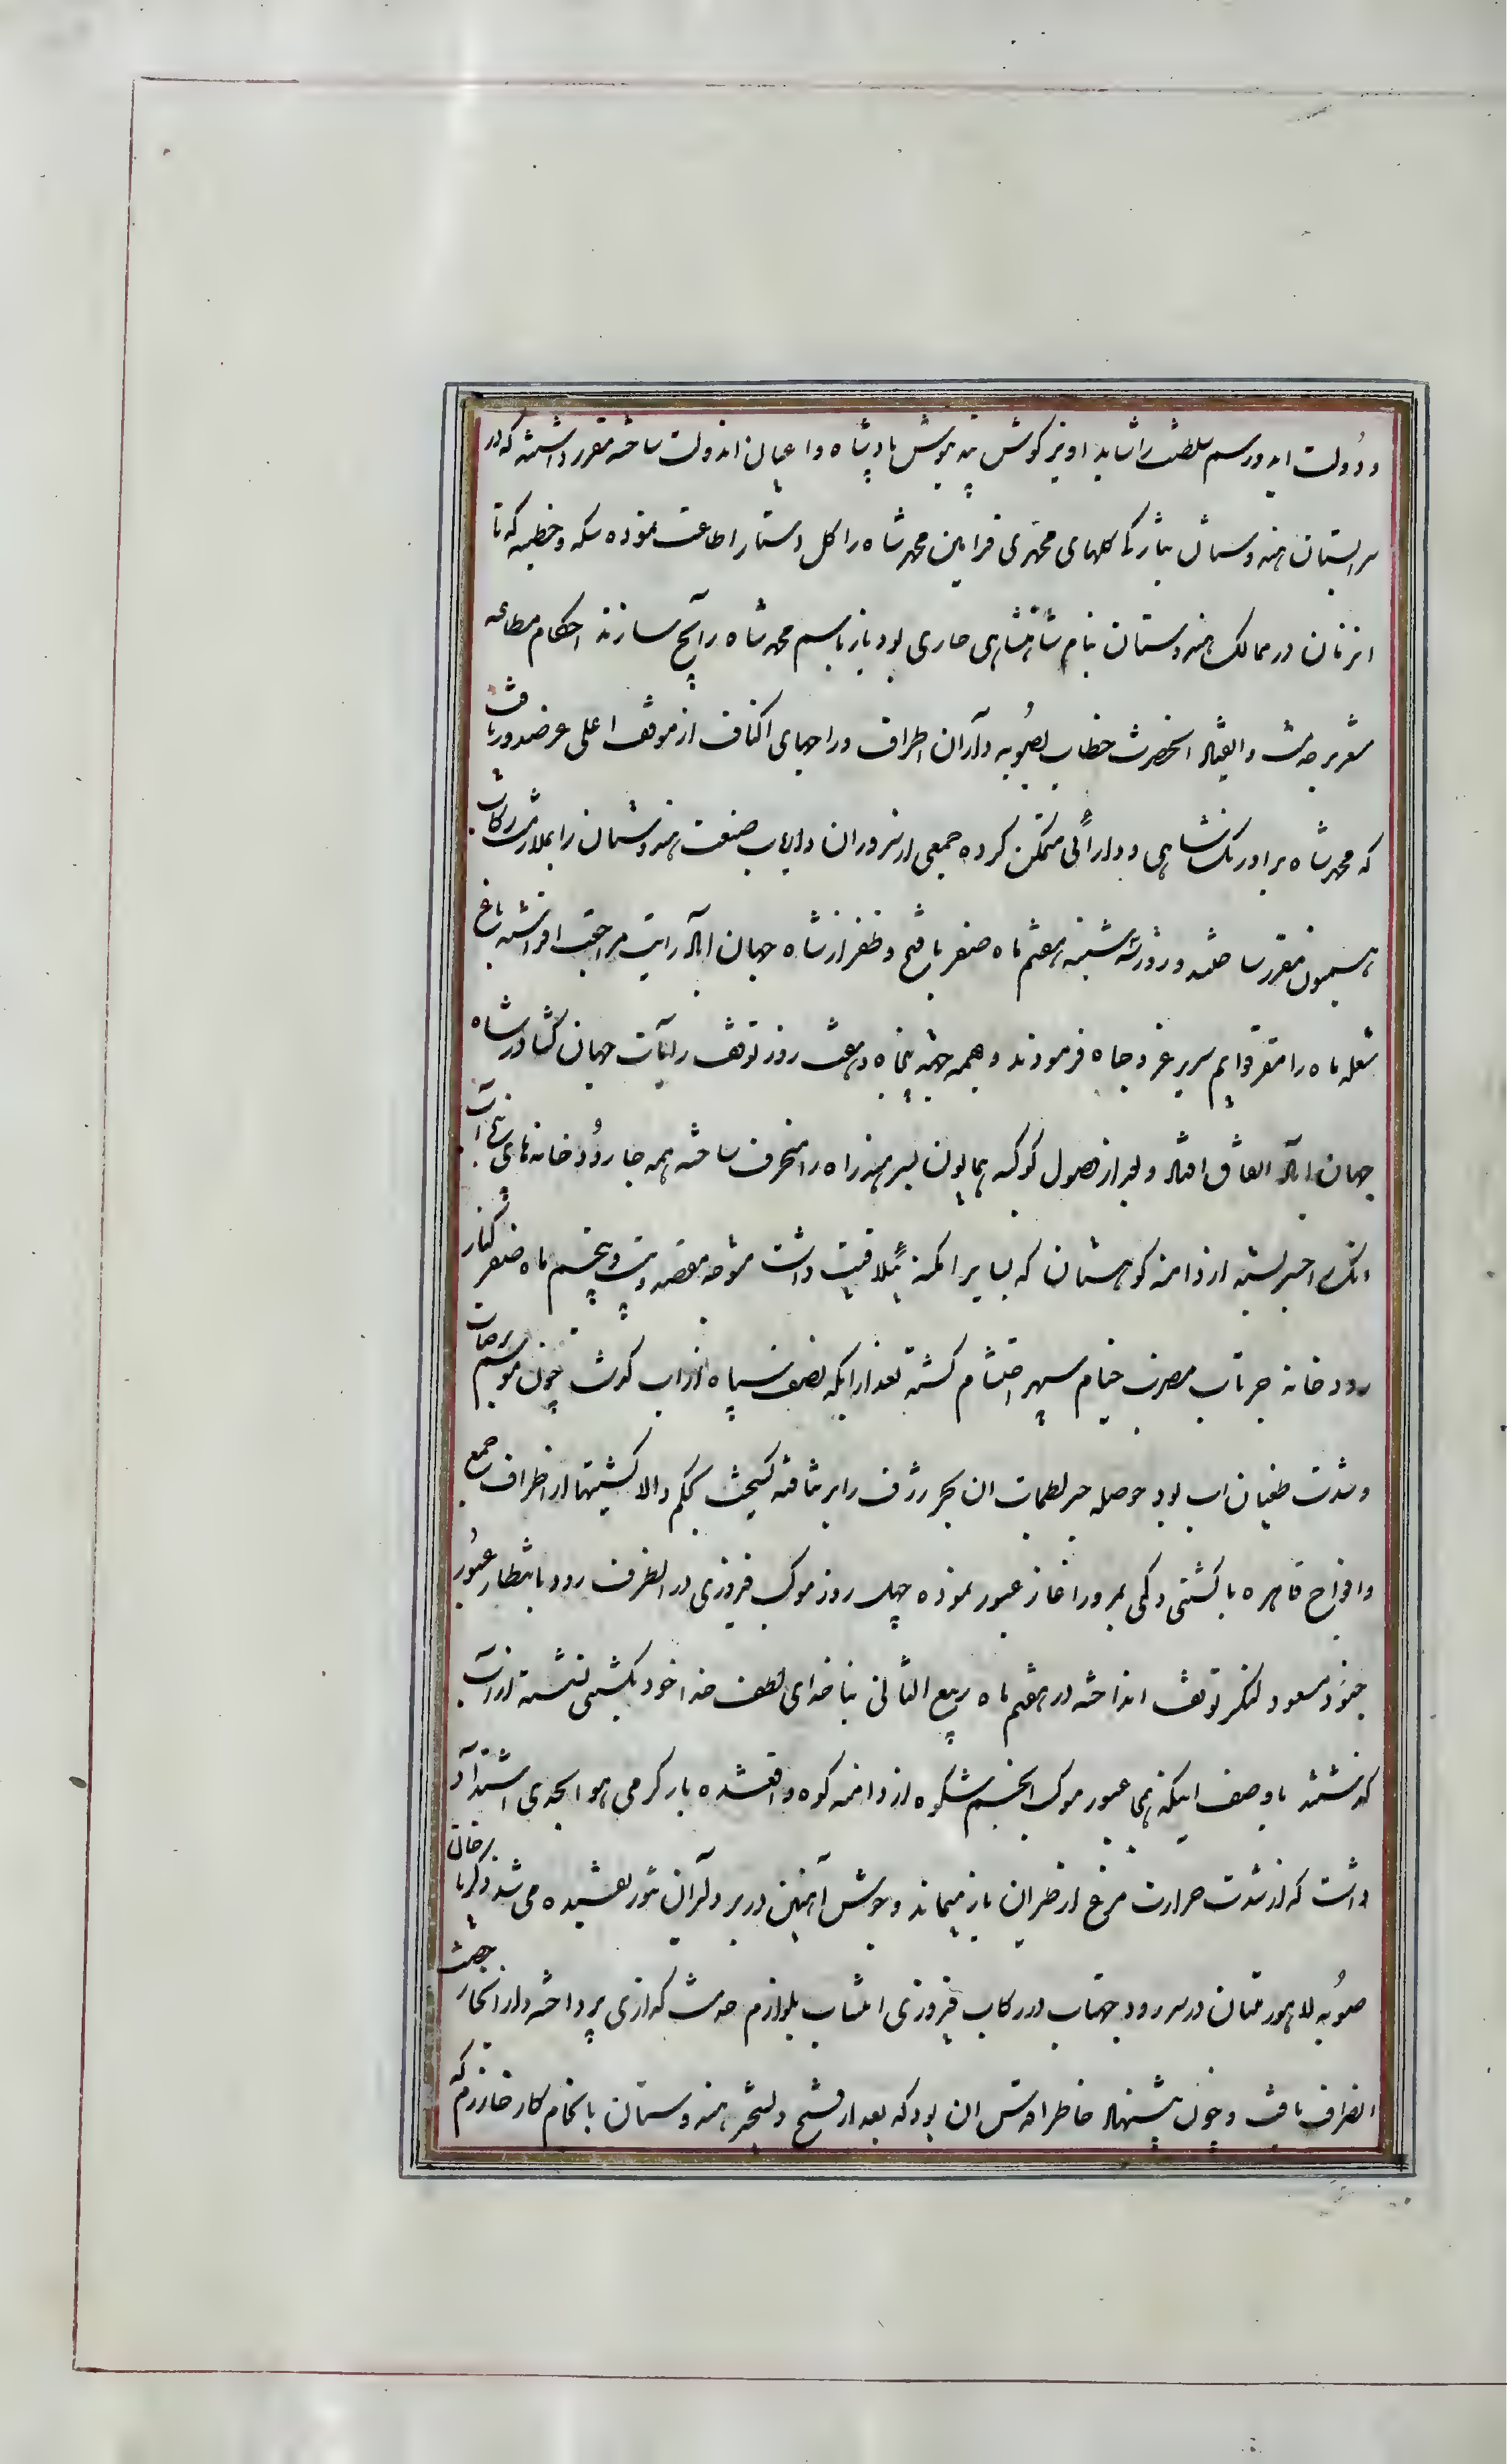 و دولت اید و رسم سلطنت را شاید اویز گوش پند نیوش پادشاه و اعیان اندولت ساخته مقرر داشتند که در
سرابستان هندوستان بتارک کلهای محمدی فرامین محمد شاه را کل دستار اطاعت نموده سکه و خطبه که تا
انزمان در ممالک هندوستان بنام شاهنشاهی جاری بود باز باسم محمد شاه رایج سازند احکام مطاعه
مشعر بر خدمت و انقیاد انحضرت خطاب بصوبه داران اطراف و راجهای اکناف از موقف اعلی عز صدور یافت
که محمد شاه برادرنک شاهی و دارائی متمکن کرده جمعی از هنروران و ارباب صنعت هندوستان را بملازمت رکاب
همیون مقرر ساختند و روز شنبه هفتم ماه صفر با فتح و ظفر از شاه جهان اباد رایت مراجعت افراشته باغ
شعله ماه را مقر قوایم سریر عز و جاه فرمودند و همه جهته پنجاه و هفت روز توقف رایات جهان کشا در شاه
جهان اباد اتفاق افتاد و بعد از وصول کوکبه همایون بسرهند راه را منحرف ساخته همه جا رودخانه های پنجاب
انک را جسر بسته از دامنه کوهستان که بسایر امکنه ئیلاقیت داشت متوجه مقصد و بیست و پنجم ماه صفر کنار
رودخانه چرناب مضرب خیام سپهر احتشام کشته بعد از انکه نصف سپاه از اب کذشت چون موسم برسات
و شدت طغیان اب بود حوصله جسر لطمات ان بحر ژرف را بر نتافته کسیخت بحکم والا کشتیها از اطراف جمع
و افواج قاهره با کشتی و کمی بمرور اغاز عبور نموده چهل روز موکب فیروزی در انطرف رود بانتظار عبور
جنود مسعود لنکر توقف انداخته در هفتم ماه ربیع الثانی بناخدای لطف خدا خود بکشتی نشسته از آب
کذشتند با وصف اینکه بنای عبور موکب انجم شکوه از دامنه کوه واقع شده باز کرمی هوا بحدی اشتداد
داشت که از شدت حرارت مرغ از طیران باز میماند و جوش آهنین در بر دلیران تنور تفسیده می شد زکریا خان
صوبه لاهور و ملتان در سر رود چناب در رکاب فیروزی انتساب بلوازم خدمت کذاری پرداخته و از انجا رخصت
انصراف یافت و چون پیشنهاد خاطر اقدس ان بود که بعد از فتح و تسخیر هندوستان بانجام کار خوارزم که